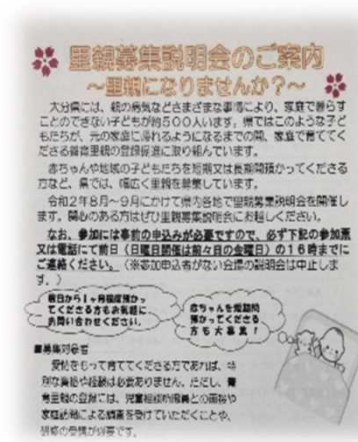 里親募集説明会のご案内
～里親になりませんか？～
大分県には、親の病気などさまざまな事情により、家庭で暮らす
ことのできない子どもが約５００人います。県ではこのような子ど
もたちが、元の家庭に帰れるようになるまでの間、家庭で育ててく
ださる養育里親の登録促進に取り組んでいます。
赤ちゃんや地域の子どもたちを短期又は長期間預かってくださる
方など、県では、幅広く里親を募集しています。
令和２年８月～９月にかけて県内各地で里親募集説明会を開催し
ます。関心のある方はぜひ里親募集説明会にお越しください。
なお、参加には事前の申込みが必要ですので、必ず下記の参加票
又は電話にて前日（日曜日開催は前々月の金曜日）の１６時までに
ご連絡ください。（※参加申込者がない会場の説明会は中止しま
す。）
数日から１ヶ月程度預かっ
てくださる方もお気軽に
お問い合わせください。
赤ちゃんを短期間
預かってくださる
方も大募集！
■募集対象者
愛情をもって育ててくださる方であれば、特
別な資格や経験は必要ありません。ただし、養
育里親の登録では、児童相談所職員との面接や
家庭訪問による調査を受けていただくことや、
研修の受講が必要です。